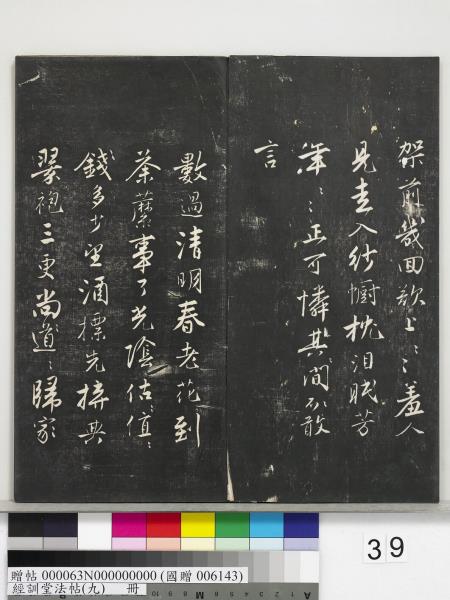 架前幾回欲上〻羞人
見走入紗幮枕泪眠芳
年〻正可憐其間不敢
言
數過清明春老花到
荼蘼事了光陰估值〻
錢多少望酒標先拚典
翠袍三更尚道〻歸家
39
贈帖 000063N000000000 (國贈 006143)
經訓堂法帖(九) 冊